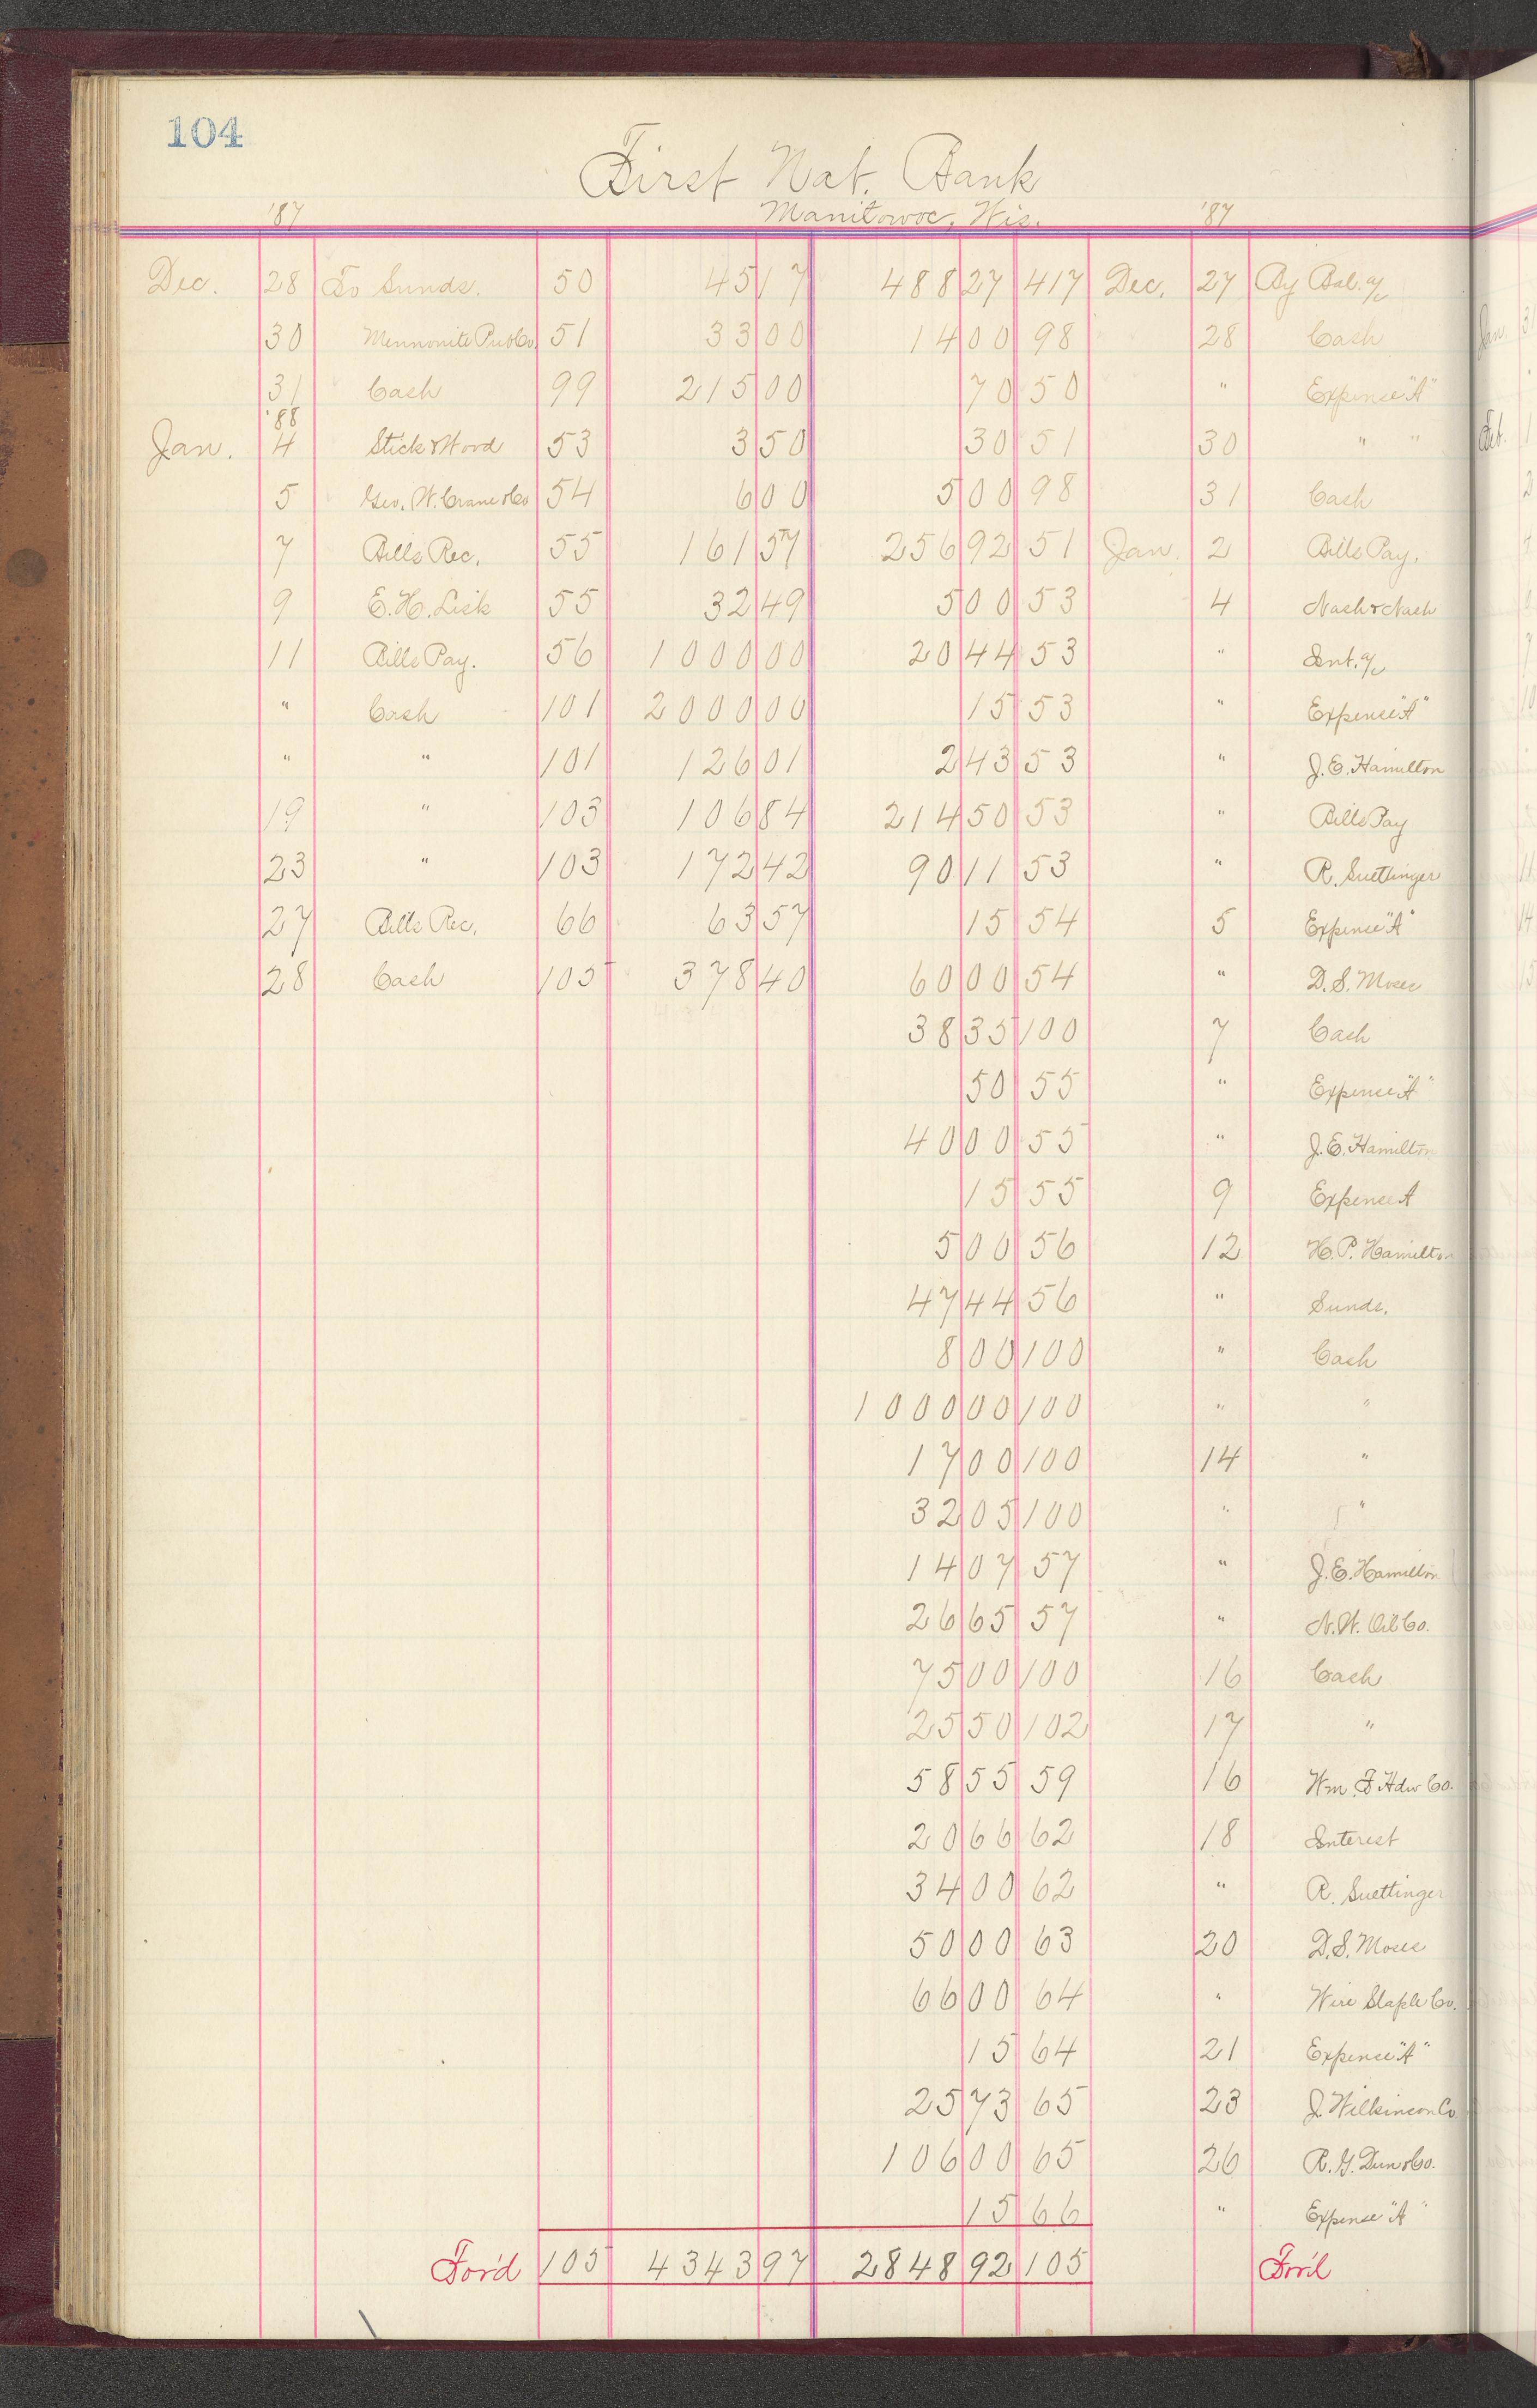 104
First Nat. Bank
Manitowoc, Wis.
'87 '87
Dec. 28 To Sunds. 50 45 17 488 27 417 Dec. 27 By Bal. a/c
30 Mennonite Pub Co. 51 33 00 14 00 98 28 Cash
31 Cash 99 215 00 70 50 " Expense "A"
'88
Jan. 4 Stick & Word 53 3 50 30 51 30 " "
5 Geo. W. Crane & Co 54 6 00 5 00 98 31 Cash
7 Bills Rec. 55 161 57 256 92 51 Jan. 2 Bills Pay.
9 E. H. Lisk 55 32 49 5 00 53 4 Nash & Nash
11 Bills Pay. 56 1000 00 20 44 53 " Int. a/c
" Cash 101 2000 00 15 53 " Expense "A"
" " 101 126 01 2 43 53 " J. E. Hamilton
19 " 103 106 84 214 50 53 " Bills Pay
23 " 103 172 42 90 11 53 " R. Suettinger
27 Bills Rec. 66 63 57 15 54 5 Expense "A"
28 Cash 105 378 40 60 00 54 " D. S. Moses
38 35 100 7 Cash
50 55 " Expense "A"
40 00 55 " J. E. Hamilton
15 55 9 Expense A
5 00 56 12 H. P. Hamilton
47 44 56 " Sunds.
8 00 100 " Cash
1000 00 100 " "
17 00 100 14 "
32 05 100 " "
14 07 57 " J. E. Hamilton
26 65 57 " N. W. Oil Co.
75 00 100 16 Cash
25 50 102 17 "
58 55 59 16 Wm. F Hdw Co.
20 66 62 18 Interest
34 00 62 " R. Suettinger
50 00 63 20 D. S. Moses
66 00 64 " Wire Staple Co.
15 64 21 Expense "A"
25 73 65 23 J. Wilkinson Co
106 00 65 26 R. G. Dun & Co.
15 66 " Expense "A"
For'd 105 4343 97 2848 92 105 For'd